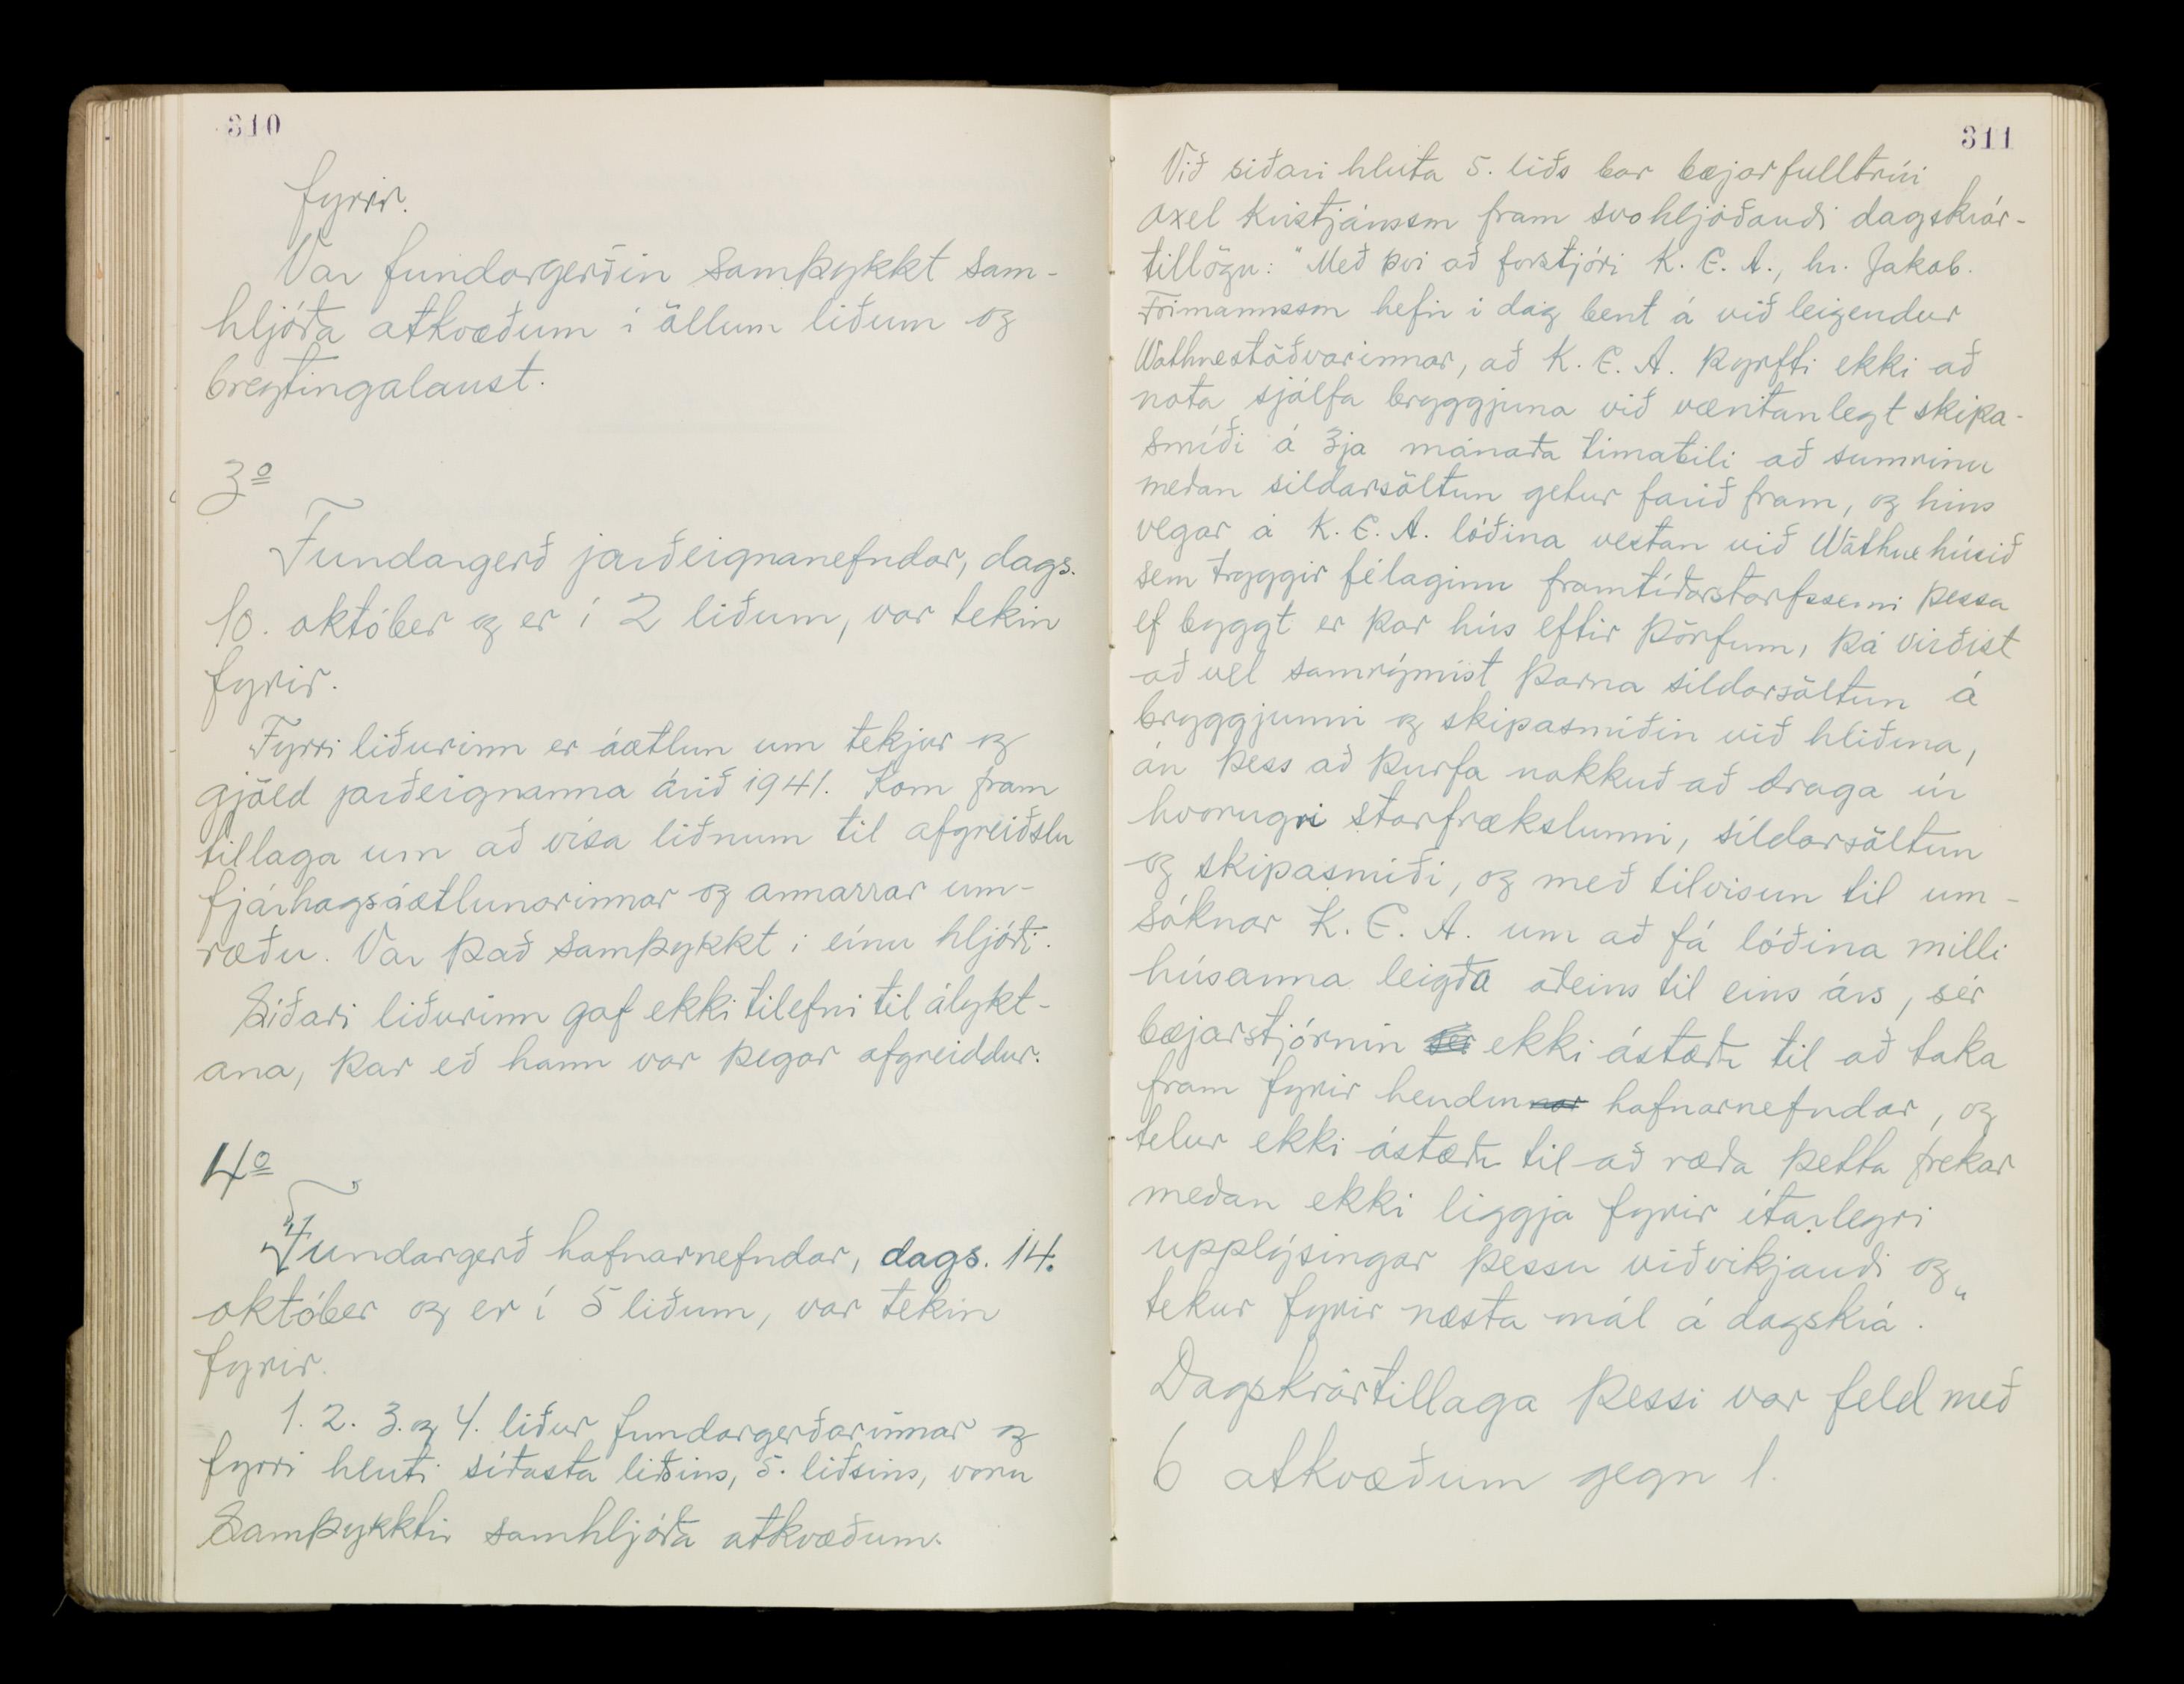 310
fyrir.
Var fundargerðin samþykkt sam-
hljóða atkvæðum í öllum liðum og
breytingalaust.
3º
Fundargerð jarðeignanefndar, dags.
10. október og er í 2 liðum, var tekin
fyrir.
Fyrri liðurinn er áætlun um tekjur og
gjöld jarðeignanna árið 1941. Kom fram
tillaga um að vísa liðnum til afgreiðslu
fjárhagsáætlunarinnar og annarrar um-
ræðu. Var það samþykkt í einu hljóði.
Síðari liðurinn gaf ekki tilefni til álykt-
ana, þar eð hann var þegar afgreiddur.
4º
Fundargerð hafnarnefndar, dags. 14.
október og er í 5 liðum, var tekin
fyrir.
1. 2. 3. og 4. liður fundargerðarinnar og
fyrri hluti síðasta liðsins, 5. liðsins, voru
Samþykktir samhljóða atkvæðum.
311
Við síðari hluta 5. liðs bar bæjarfulltrúi
Axel Kristjánsson fram svohljóðandi dagskrár-
tillögu: "Með því að forstjóri K. E. A., hr. Jakob.
Frímannsson hefir í dag bent á við leigendur
Wathnestöðvarinnar, að K. E. A. þyrfti ekki að
nota sjálfa bryggjuna við væntanlegt skipa-
smíði á 3ja mánaða tímabili að sumrinu
meðan síldarsöltun getur farið fram, og hins
vegar á K. E. A. lóðina vestan við Wathnehúsið
sem tryggir félaginu framtíðarstarfssemi þessa
ef byggt er þar hús eftir þörfum, þá virðist
að vel samrýmist þarna síldarsöltun á
bryggjunni og skipasmíðin við hliðina,
án þess að þurfa nokkuð að draga úr
hvorugri starfrækslunni, síldarsöltun
og skipasmíði, og með tilvísun til um-
sóknar K. E. A. um að fá lóðina milli
húsanna leigða aðeins til eins árs, sér
bæjarstjórnin sér ekki ástæðu til að taka
fram fyrir hendurnar hafnarnefndar, og
telur ekki ástæðu til að ræða þetta frekar
meðan ekki liggja fyrir ítarlegri
upplýsingar þessu viðvíkjandi og
tekur fyrir næsta mál á dagskrá."
Dagskrártillaga þessi var feld með
6 atkvæðum gegn 1.